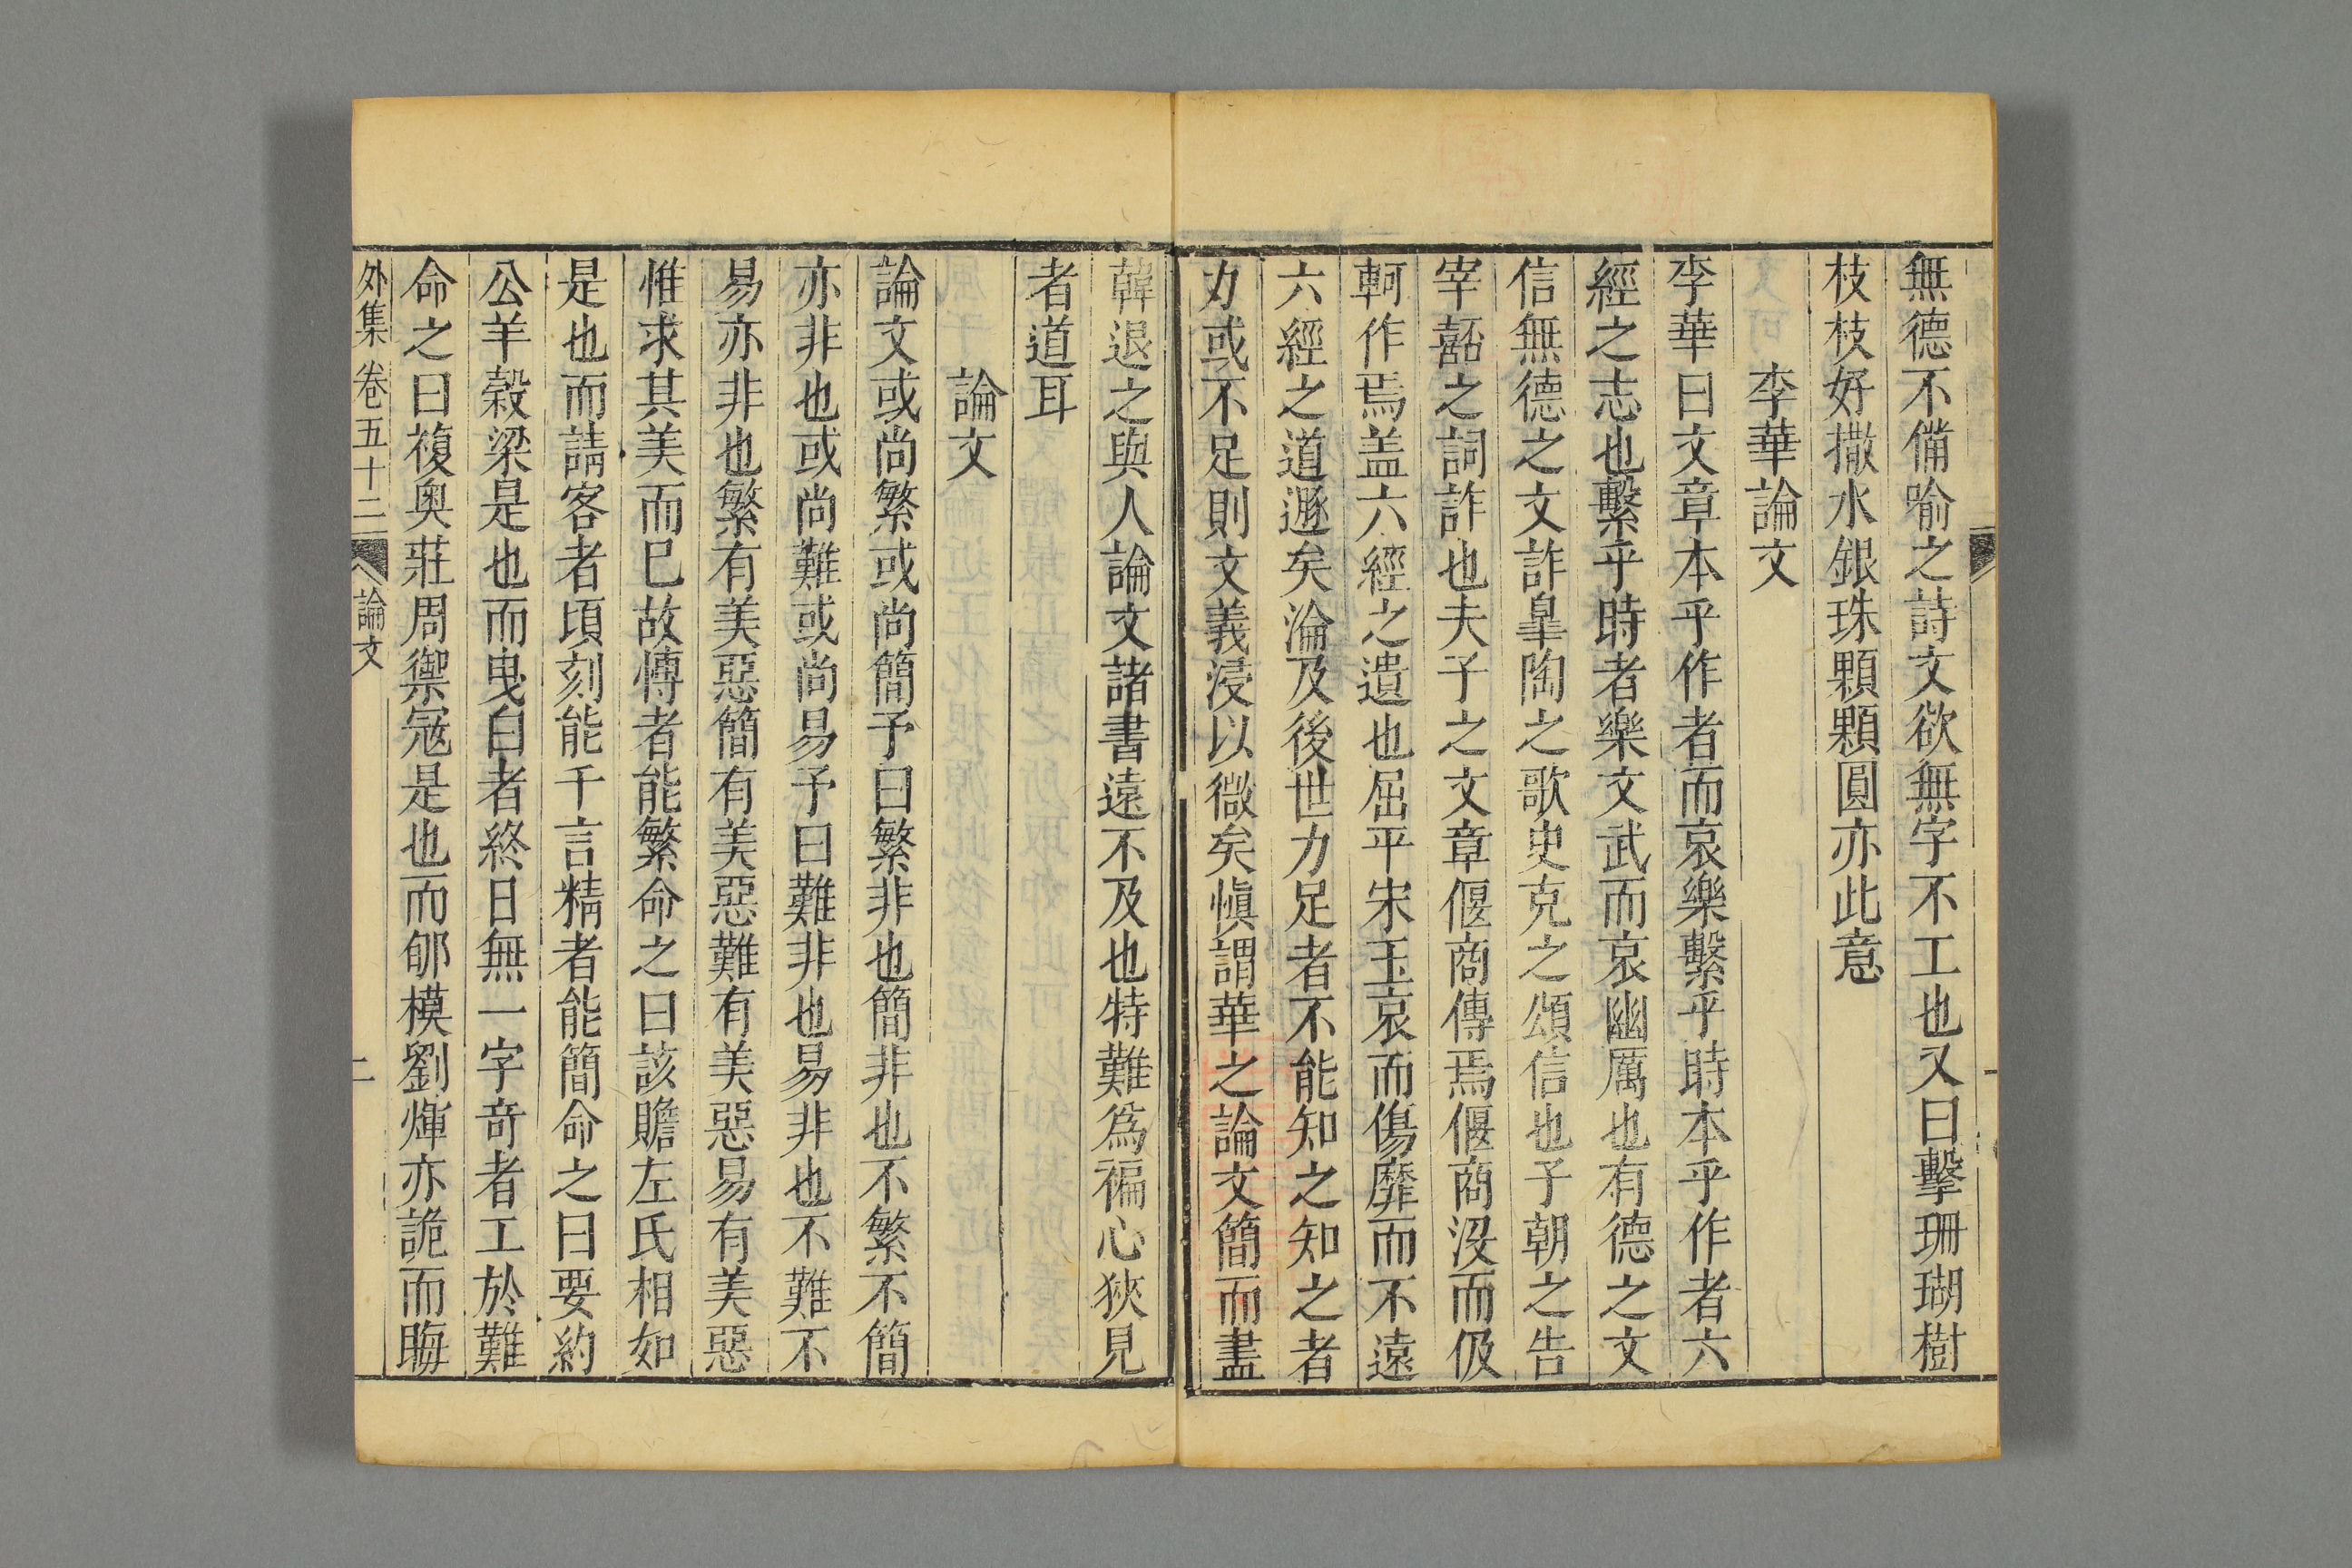 無德不備喻之詩文欲無字不工也又曰擊珊瑚樹
枝枝好撒水銀珠顆顆圓亦此意
李華論文
李華曰文章本乎作者而哀樂繫乎時本乎作者六
經之志也繫乎時者樂文武而哀幽厲也有德之文
信無德之文詐臯陶之歌史克之頌信也子朝之告
宰嚭之詞詐也夫子之文章偃商傳焉偃商没而伋
軻作焉盖六經之遺也屈平宋玉哀而傷靡而不遠
六經之道遯矣淪及後世力足者不能知之知之者
力或不足則文義浸以微矣愼謂華之論文簡而盡
韓退之與人論文諸書遠不及也特難爲褊心狹見
者道耳
論文
論文或尚繁或尚簡予曰繁非也簡非也不繁不簡
亦非也或尚難或尚易予曰難非也易非也不難不
易亦非也繁有美惡簡有美惡難有美惡易有美惡
惟求其美而已故博者能繁命之曰該贍左氏相如
是也而請客者頃刻能千言精者能簡命之曰要約
公羊穀梁是也而曳白者終日無一字竒者工於難
命之曰複奧莊周禦寇是也而郇模劉煇亦詭而晦
外集 卷五十二 論文 二